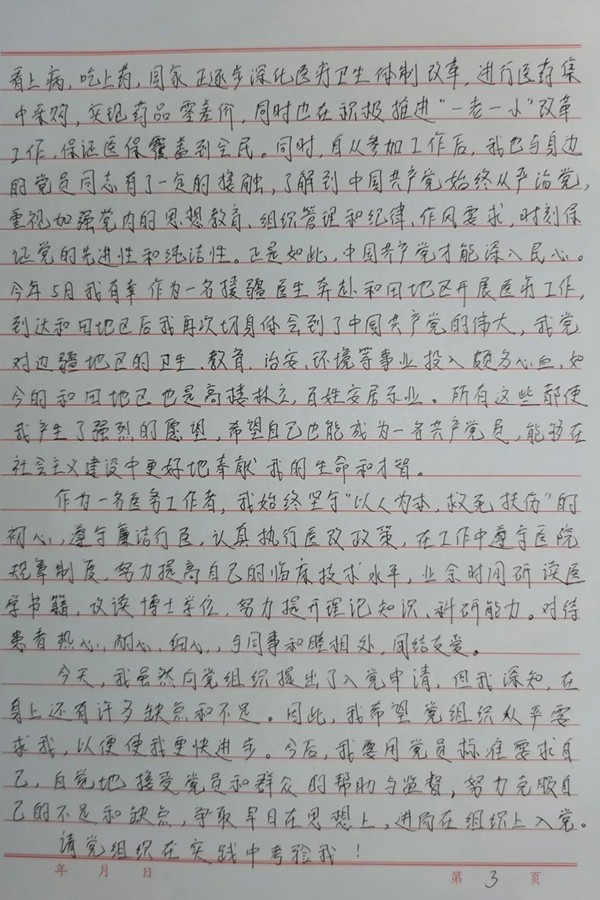 看上病，吃上药，国家正逐步深化医疗卫生体制改革，进行医药集
中采购，实现药品零差价，同时也在积极推进“一老一小”改革
工作，保证医保覆盖到全民。同时，自从参加工作后，我也与身边
的党员同志有了一定的接触，了解到中国共产党始终从严治党，
重视加强党内的思想教育、组织管理和纪律、作风要求，时刻保
证党的先进性和纯洁性。正是如此，中国共产党才能深入民心。
今年5月我有幸作为一名援疆医生奔赴和田地区开展医疗工作，
到达和田地区后我再次切身体会到了中国共产党的伟大，我党
对边疆地区的卫生、教育、治安、环境等事业投入颇多心血，如
今的和田地区也是高楼林立，百姓安居乐业。所有这些都使
我产生了强烈的愿望，希望自己也能成为一名共产党员，能够在
社会主义建设中更好地奉献我的生命和才智。
作为一名医务工作者，我始终坚守“以人为本，救死扶伤”的
初心，遵守廉洁行医，认真执行医改政策，在工作中遵守医院
规章制度，努力提高自己的临床技术水平，业余时间研读医
学书籍，攻读博士学位，努力提升理论知识、科研能力。对待
患者热心、耐心、细心，与同事和睦相处，团结友爱。
今天，我虽然向党组织提出了入党申请，但我深知，在
身上还有许多缺点和不足。因此，我希望党组织从严要
求我，以便使我更快进步。今后，我要用党员标准要求自
己，自觉地接受党员和群众的帮助与监督，努力克服自
己的不足和缺点，争取早日在思想上，进而在组织上入党。
请党组织在实践中考验我！
年 月 日 第 3 页